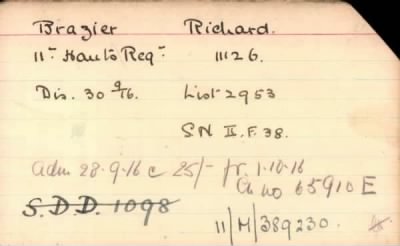 Brazier Richard.
11th Hants Regt. 11126.
Dis. 30 9/16. List 2953
SN II. F. 38.
Adm 28.9.16 c 25/- fr. 1.10.16
Ch no 65910 E
S.D.D. 1098
11/M/389230.